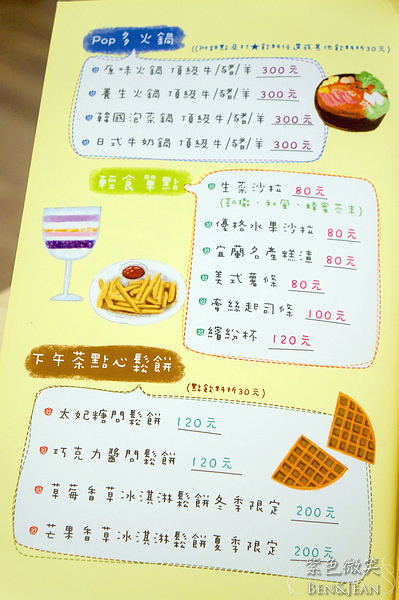 Pop多火鍋
((附甜點及打★飲料任選或其他飲料折30元)
原味火鍋 頂級牛/豬/羊 300元
養生火鍋 頂級牛/豬/羊 300元
韓國泡菜鍋 頂級牛/豬/羊 300元
日式牛奶鍋 頂級牛/豬/羊 300元
輕食單點
生菜沙拉 80元
(凱撒、和風、蜂蜜芥末)
優格水果沙拉 80元
宜蘭名產糕渣 80元
美式薯條 80元
牽絲起司條 100元
繽紛杯 120元
下午茶點心鬆餅
(點飲料折30元)
太妃糖問鬆餅 120元
巧克力醬問鬆餅 120元
草莓香草冰淇淋鬆餅冬季限定 200元
芒果香草冰淇淋鬆餅夏季限定 200元
紫色微笑
BEN&JEAN